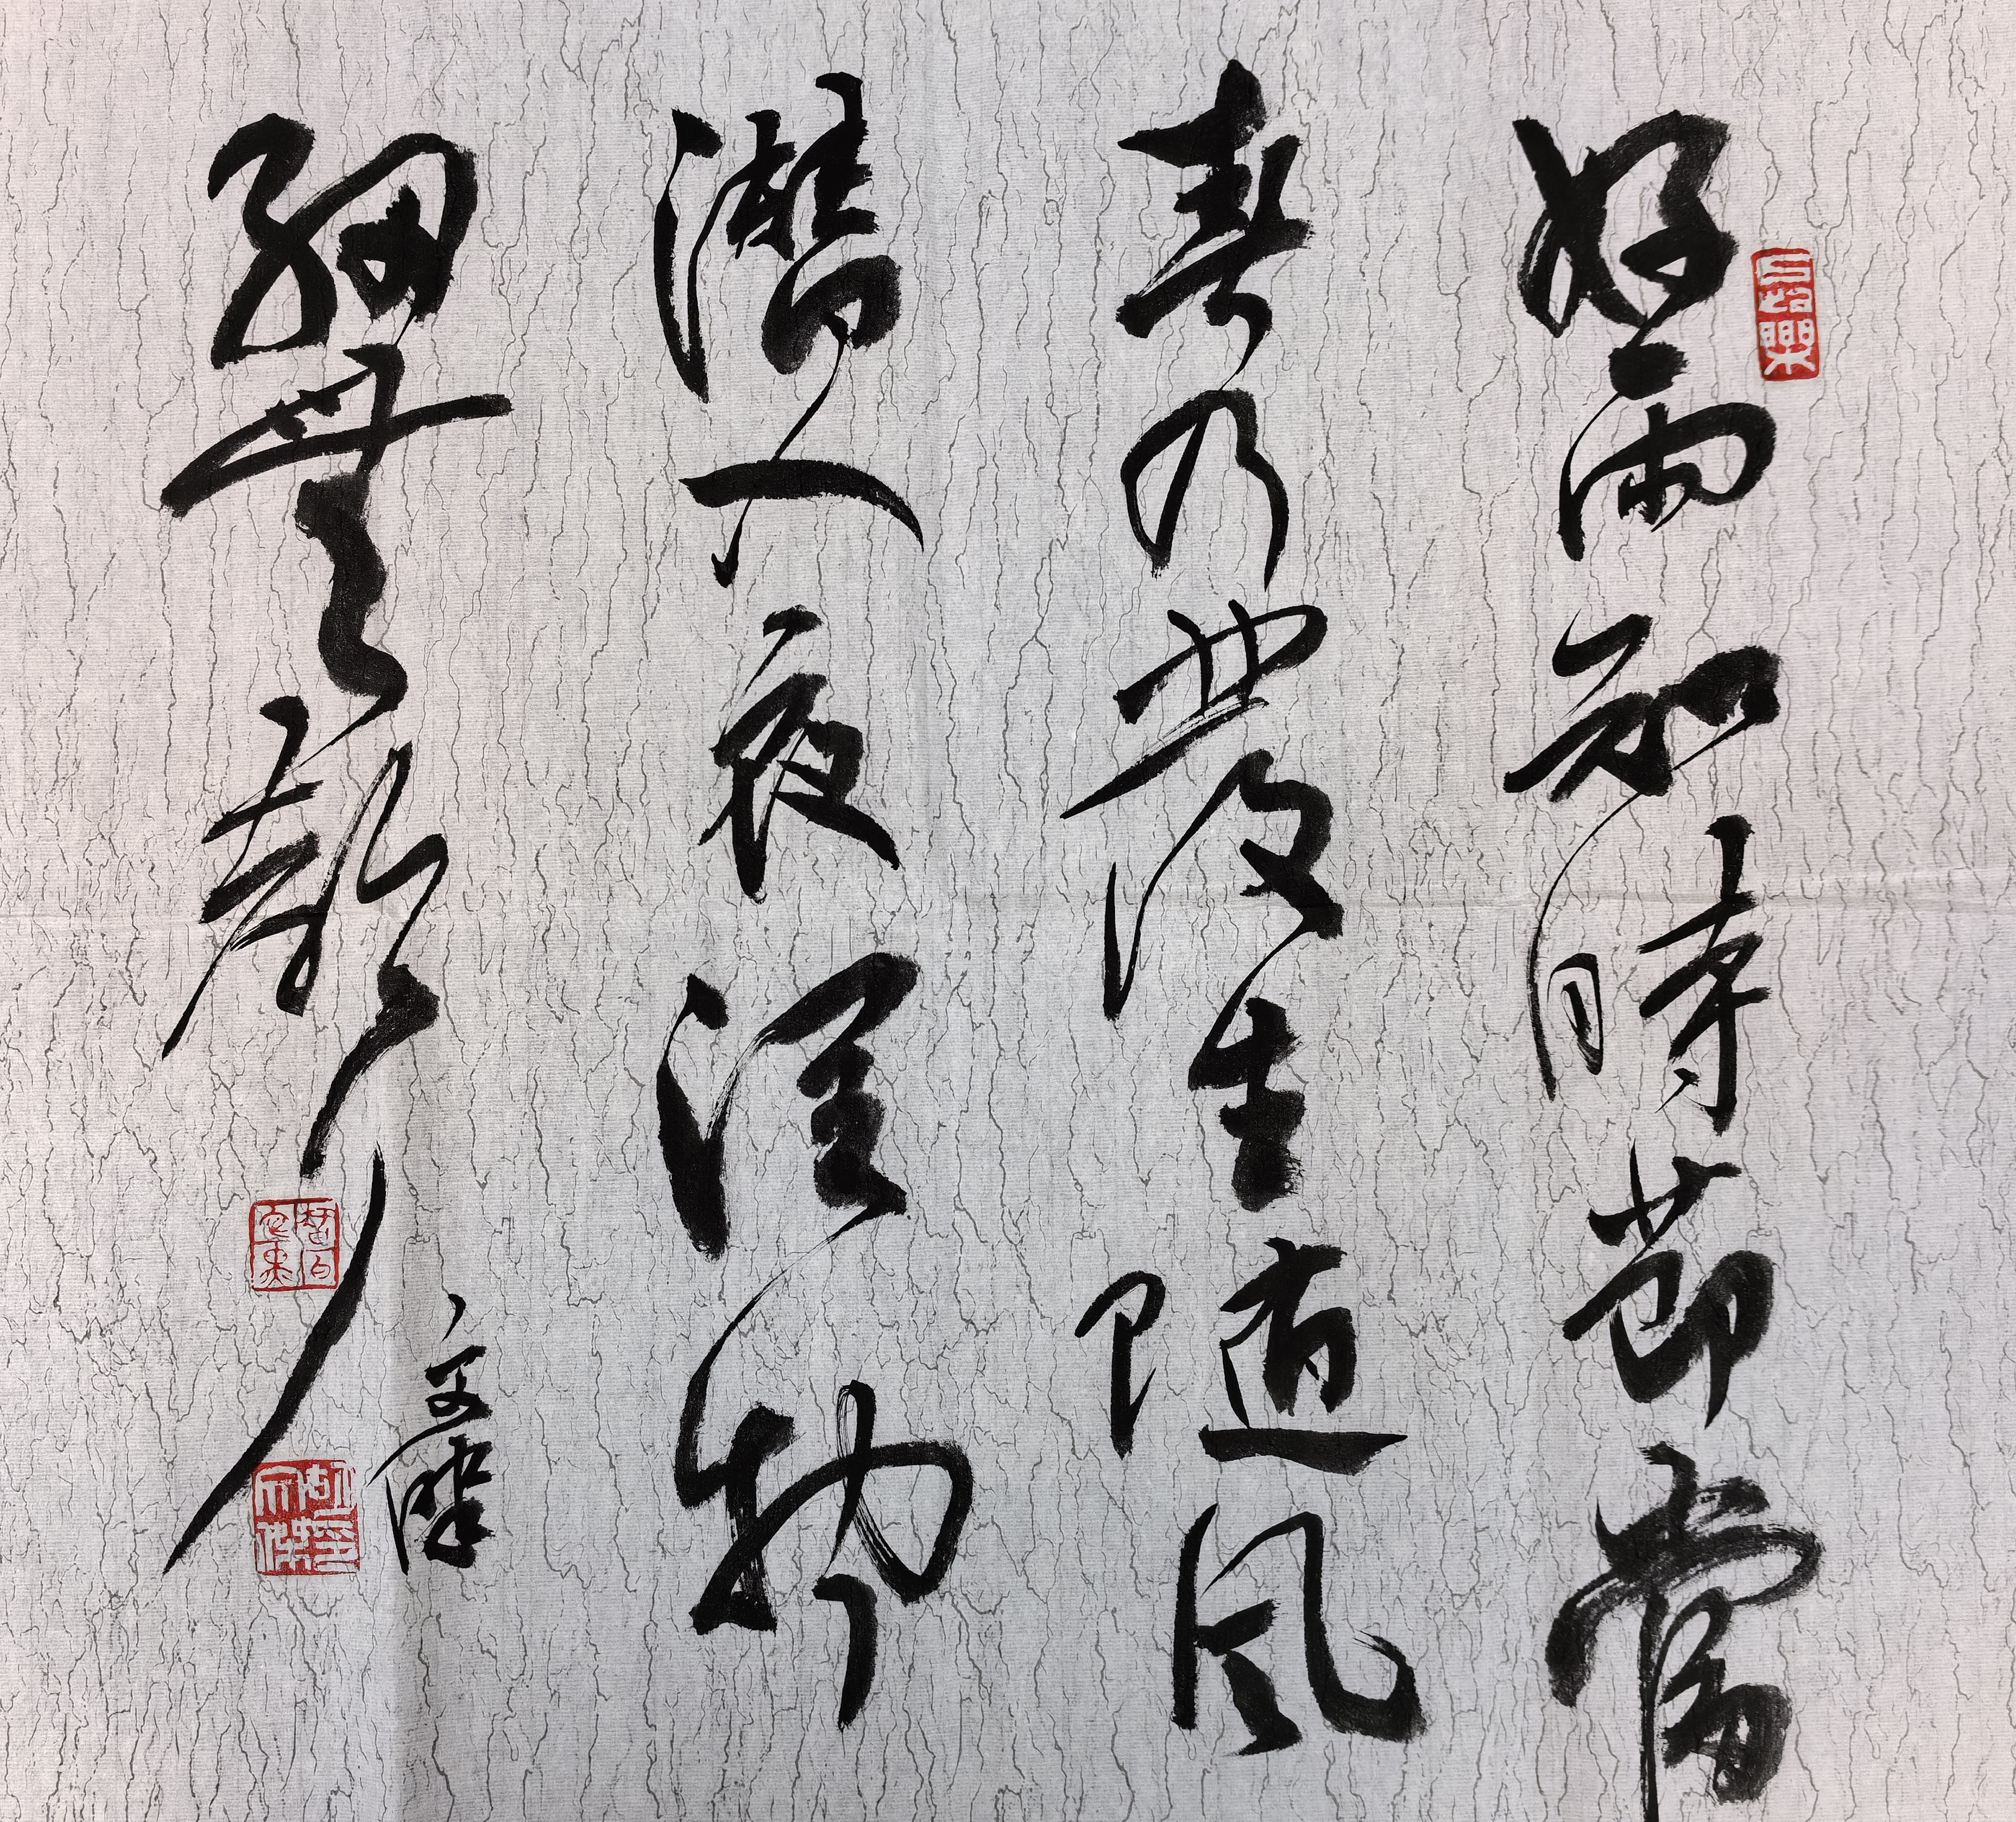 好雨知時節當
春乃發生隨風
潛入夜潤物
細無聲
文